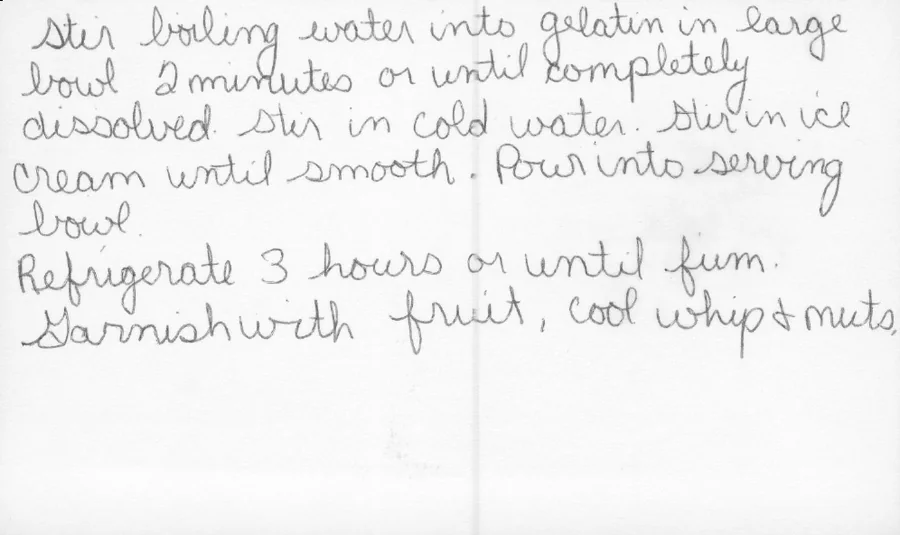 Stir boiling water into gelatin in large
bowl 2 minutes or until completely
dissolved. Stir in cold water. Stir in ice
cream until smooth. Pour into serving
bowl.
Refrigerate 3 hours or until firm.
Garnish with fruit, cool whip & nuts.